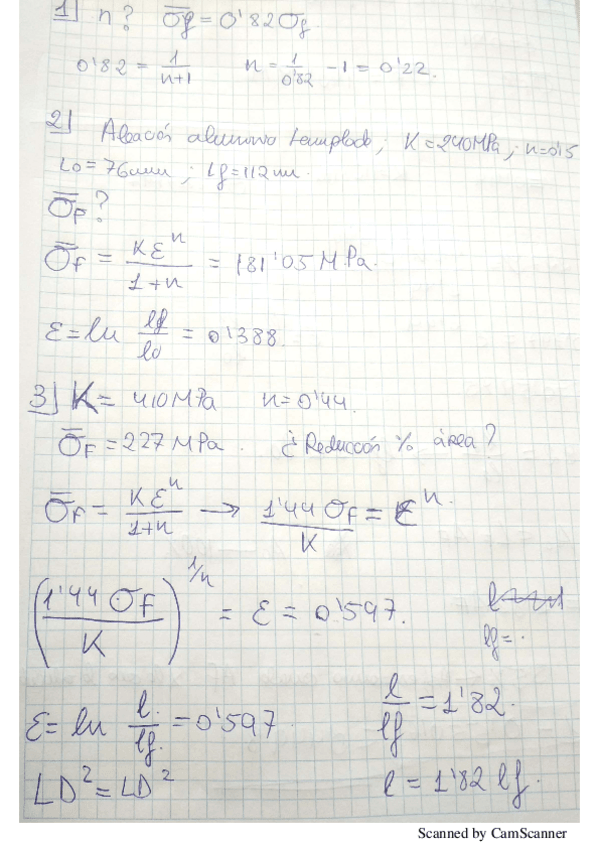 1) n? σ̄f = 0'82 σf.
0'82 = 1/(n+1)   n = 1/0'82 - 1 = 0'22.
2) Aleación aluminio templado; K = 240MPa; n=0'15
Lo = 76mm; Lf = 112mm.
σ̄F?
σ̄F = Kε^n/(1+n) = 181'05 MPa.
ε = ln lf/lo = 0'388.
3) K = 410MPa   n = 0'44.
σ̄F = 227 MPa. ¿Reducción % área?
σ̄F = Kε^n/(1+n) → 1'44 σF/K = ε^n.
(1'44 σF/K)^(1/n) = ε = 0'597.
lf = .
ε = ln l/lf = 0'597   l/lf = 1'82.
LD² = LD²   l = 1'82 lf.
Scanned by CamScanner